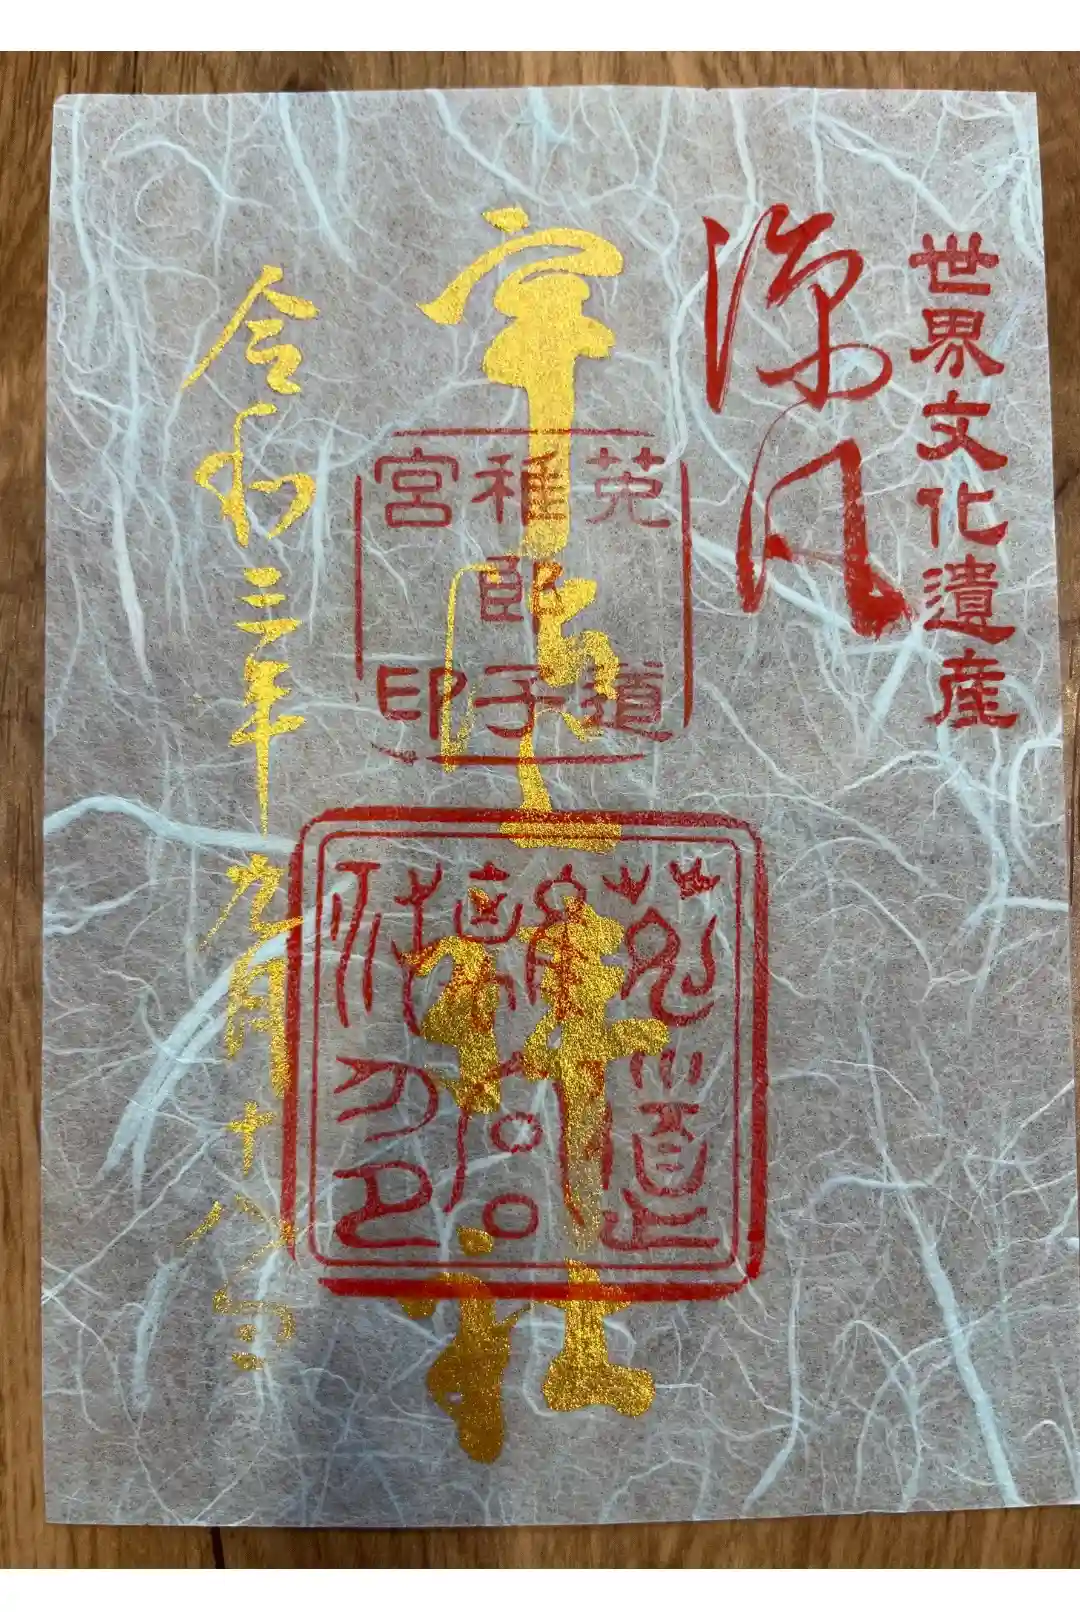 世界文化遺産
宇治上神社
菟道
稚郎子
宮印
菟道
離宮
社乃印
令和三年九月十八日